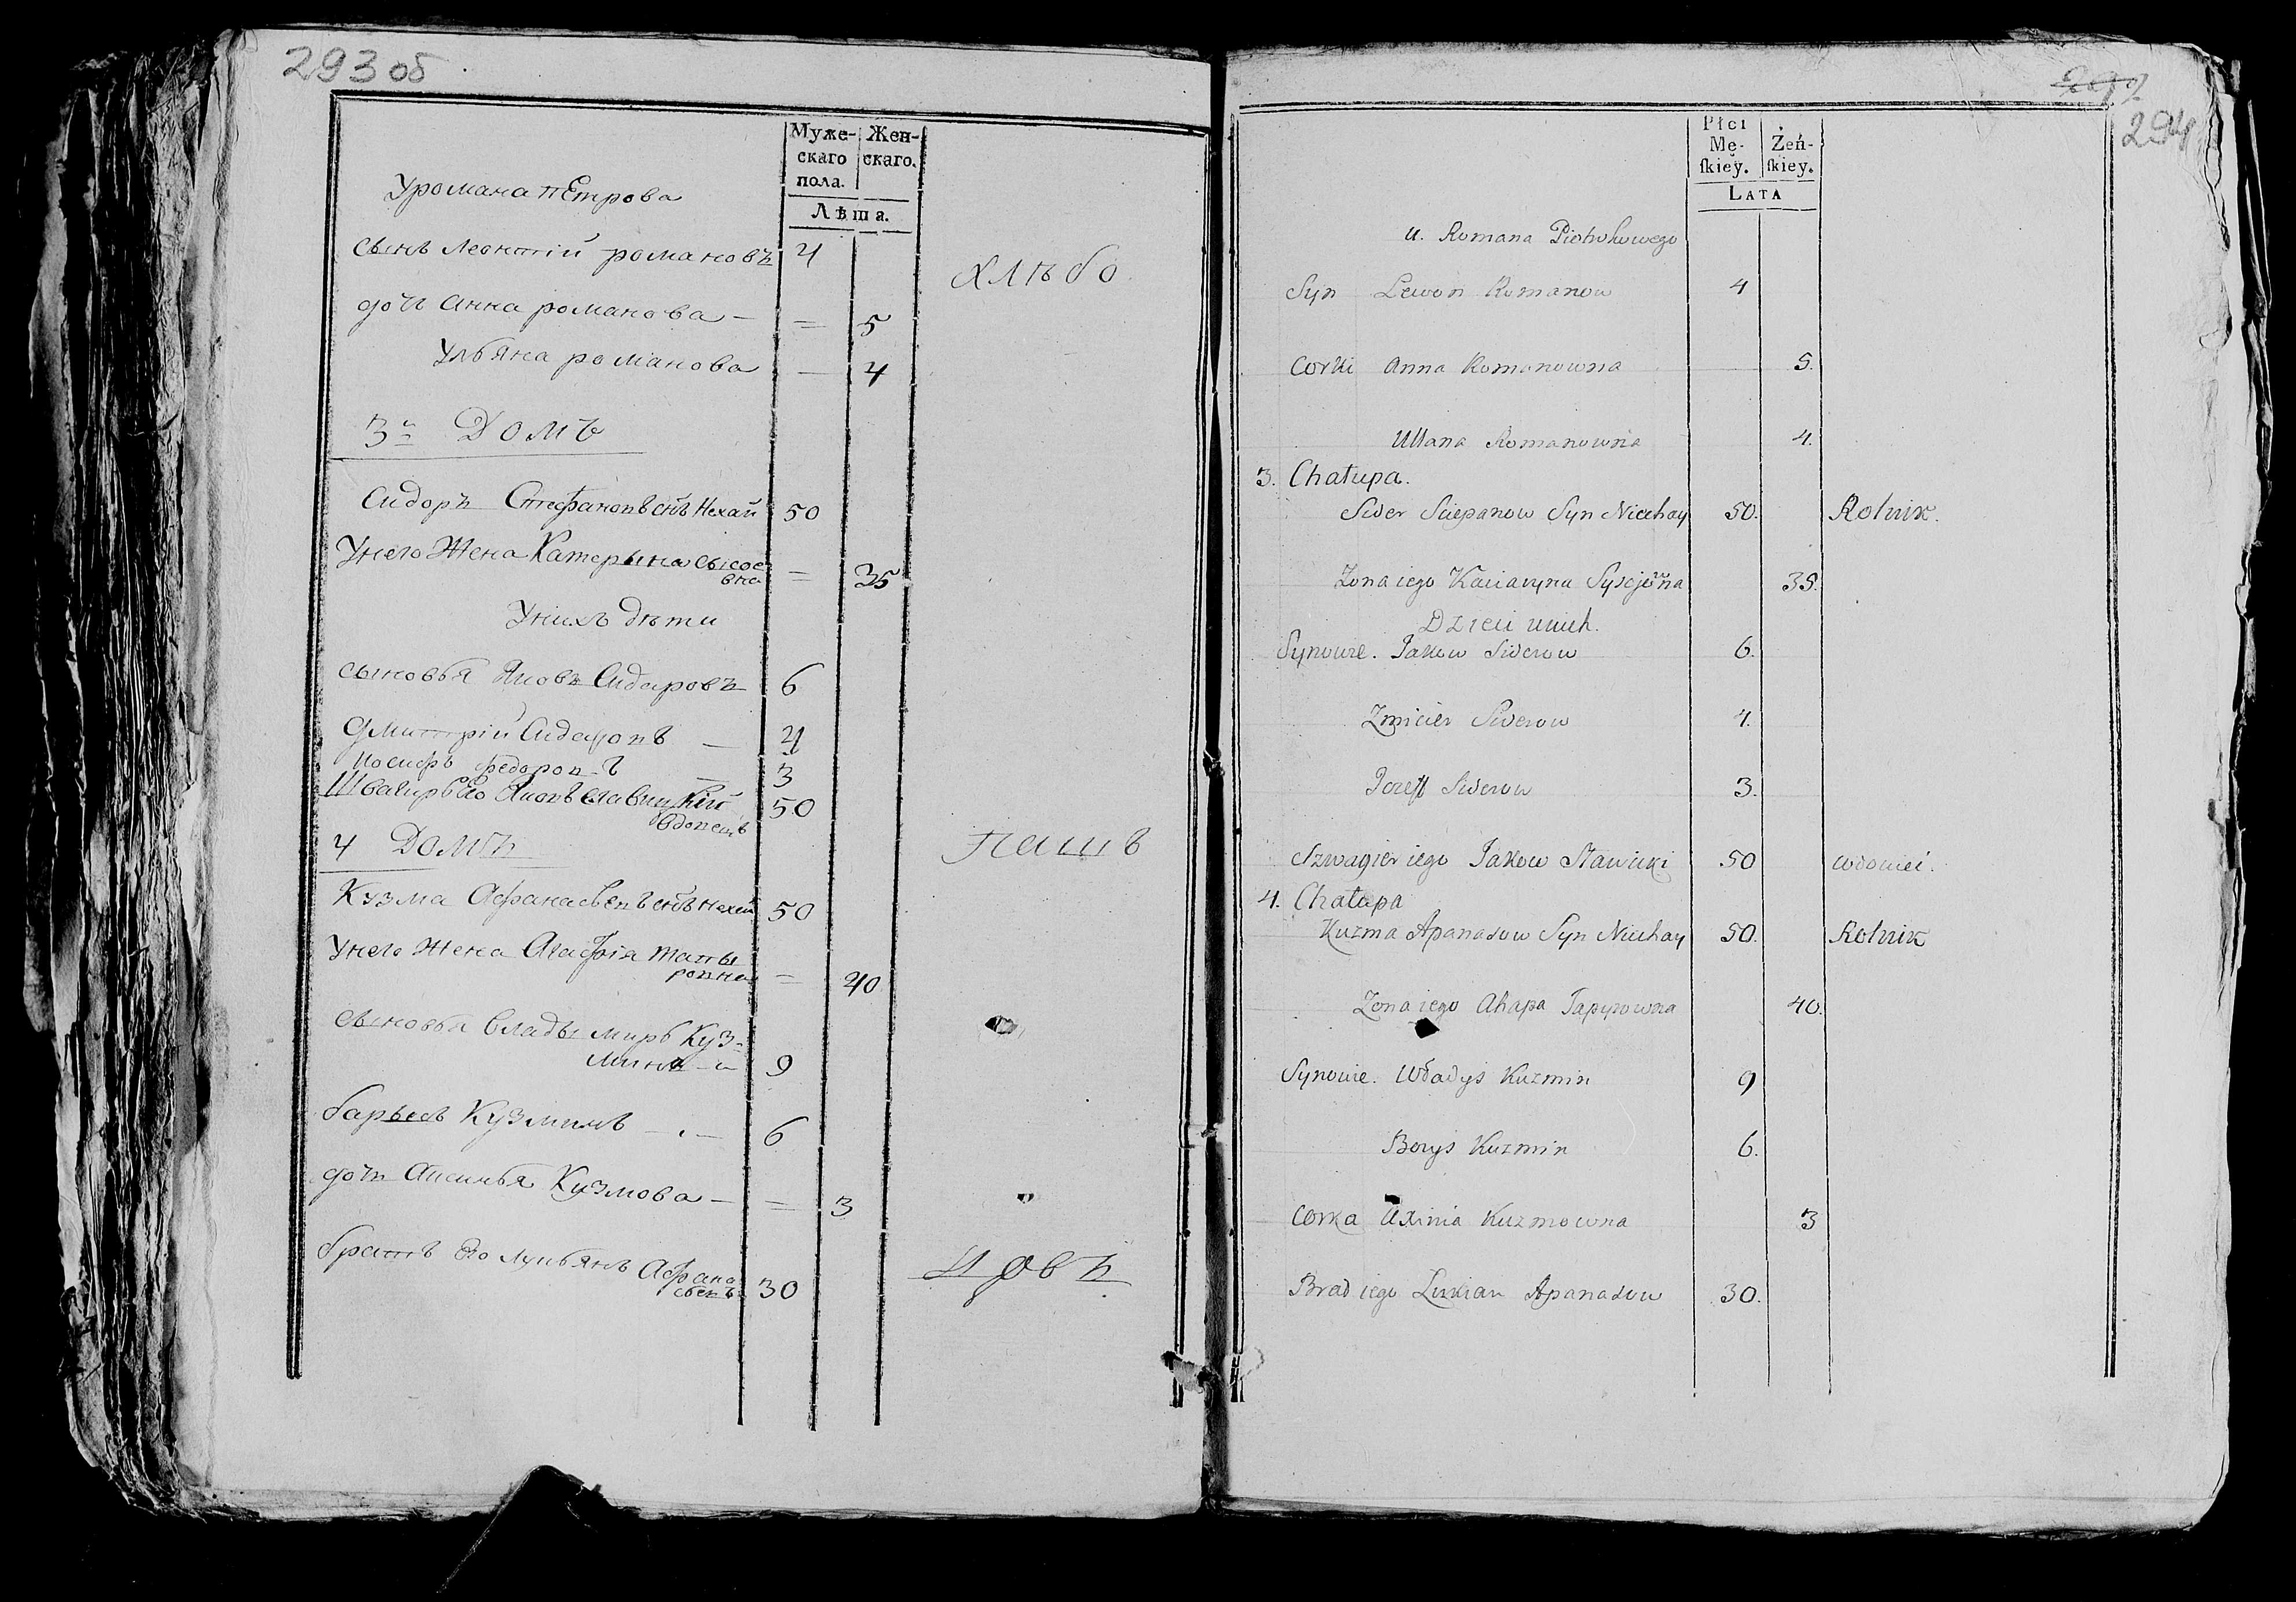 293 об
Муже-
скаго
пола.
Жен-
скаго.
Лѣта.
У романа пЕтрова
сынъ Леонтій романовъ 4
хлѣбо
дочь анна романова — = 5
Ульяна романова — 4
3й Домъ
Сидоръ Стефановъ снъ Нехай 50
У него Жена Катерына сысое
вна = 35
У нихъ дѣти
сыновья Яковъ Сидаровъ 6
Дмитрій Сидаровъ — 4
Иосифъ федоровъ — 3
Швагиръ Его Яковъ славицкій 50
вдовецъ
4 Домъ
пашъ
Кузма Афанасьевъ снъ Нехай 50
У него Жена Агафія тапы
ровна = 40
сыновья Влады миръ Куз=
минъ 9
барысъ Кузминъ — 6
дочь Аксинья Кузмова — = 3
братъ Его лукьянъ Афана
сьевъ 30
цовъ
294
Płci
Mę-
ſkiey.
Żeń-
ſkiey.
LATA
u. Romana Piotrokowego
Syn Lewon Romanow 4
Corki Anna Romanowna 5.
Ullana Romanowna 4.
3. Chałupa.
Sider Sciepanow Syn Niechay 50. Rolnik.
Zona iego Kaciaryna Sysojewna 35.
Dzieci u nich.
Synowie. Jakow Siderow 6.
Zmicier Siderow 4.
Jozeff Siderow 3.
Szwagier iego Jakow Sławicki 50 wdowiec.
4. Chałupa
Kuzma Apanasow Syn Niechay 50. Rolnik
Zona iego Ahapa Tapyrowna 40.
Synowie. Władys Kuzmin 9
Borys Kuzmin 6.
Corka Axinia Kuzmowna 3
Brad iego Lukian Apanasow 30.